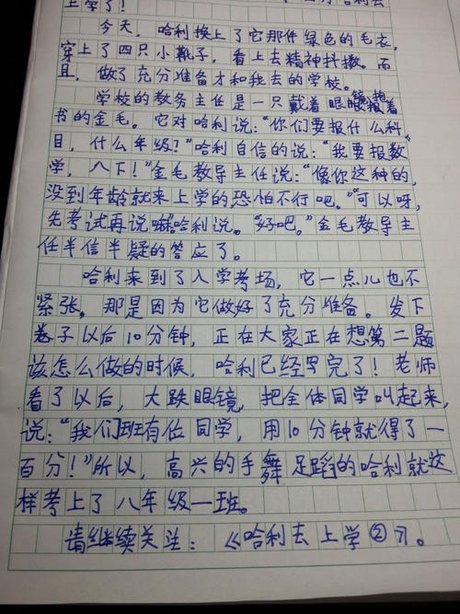 上学了!
今天,哈利换上了它那件绿色的毛衣,
穿上了四只小靴子,看上去精神抖擞。而
且,做了充分准备才和我去的学校。
学校的教务主任是一只戴着眼镜想着
书的金毛。它对哈利说:“你们要报什么科
目,什么年级?”哈利自信的说:“我要报数
学,八下!”金毛教导主任说:“像你这种的,
没到年龄就来上学的恐怕不行吧。”“可以呀,
先考试再说嘛”哈利说。“好吧。”金毛教导主
任半信半疑的答应了。
哈利来到了入学考场,它一点儿也不
紧张,那是因为它做好了充分准备。发下
卷子以后10分钟,正在大家正在想第二题
该怎么做的时候,哈利已经写完了!老师
看了以后,大跌眼镜,把全体同学叫起来,
说:“我们班有位同学,用10分钟就得了一
百分!”所以,高兴的手舞足蹈的哈利就这
样考上了八年级一班。
请继续关注:《哈利去上学②》。